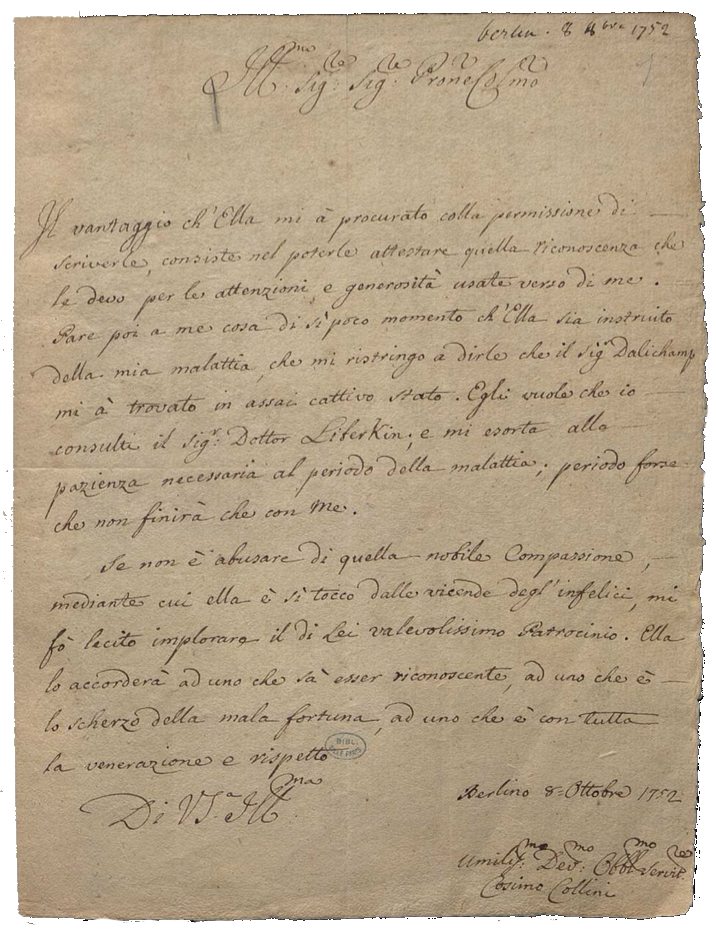 berlin. 8 8bre 1752
Ill.mo Sig.re Sig.re Prone Col.mo
Il vantaggio ch'Ella mi à procurato colla permissione di
scriverle, consiste nel poterle attestare quella riconoscenza che
le devo per le attenzioni e generosità usate verso di me.
Pare poi a me cosa di sì poco momento ch'Ella sia instruito
della mia malattia, che mi ristringo a dirle che il Sigr Dalichamp
mi à trovato in assai cattivo stato. Egli vuole che io
consulti il Sigr: Dottor Liferkin; e mi esorta alla
pazienza necessaria al periodo della malattia; periodo forse
che non finirà che con me.
Se non è abusare di quella nobile Compassione,
mediante cui ella è sì tocco dalle vicende degl'infelici, mi
fò lecito implorare il di Lei valevolissimo Patrocinio. Ella
lo accorderà ad uno che sà esser riconoscente, ad uno che è
lo scherzo della mala fortuna, ad uno che è con tutta
la venerazione e rispetto
BIBL.
Di VS.a Ill.ma
Berlino 8 Ottobre 1752
Umiliss.mo Dev.mo Obbl.mo Servit.re
Cosimo Collini